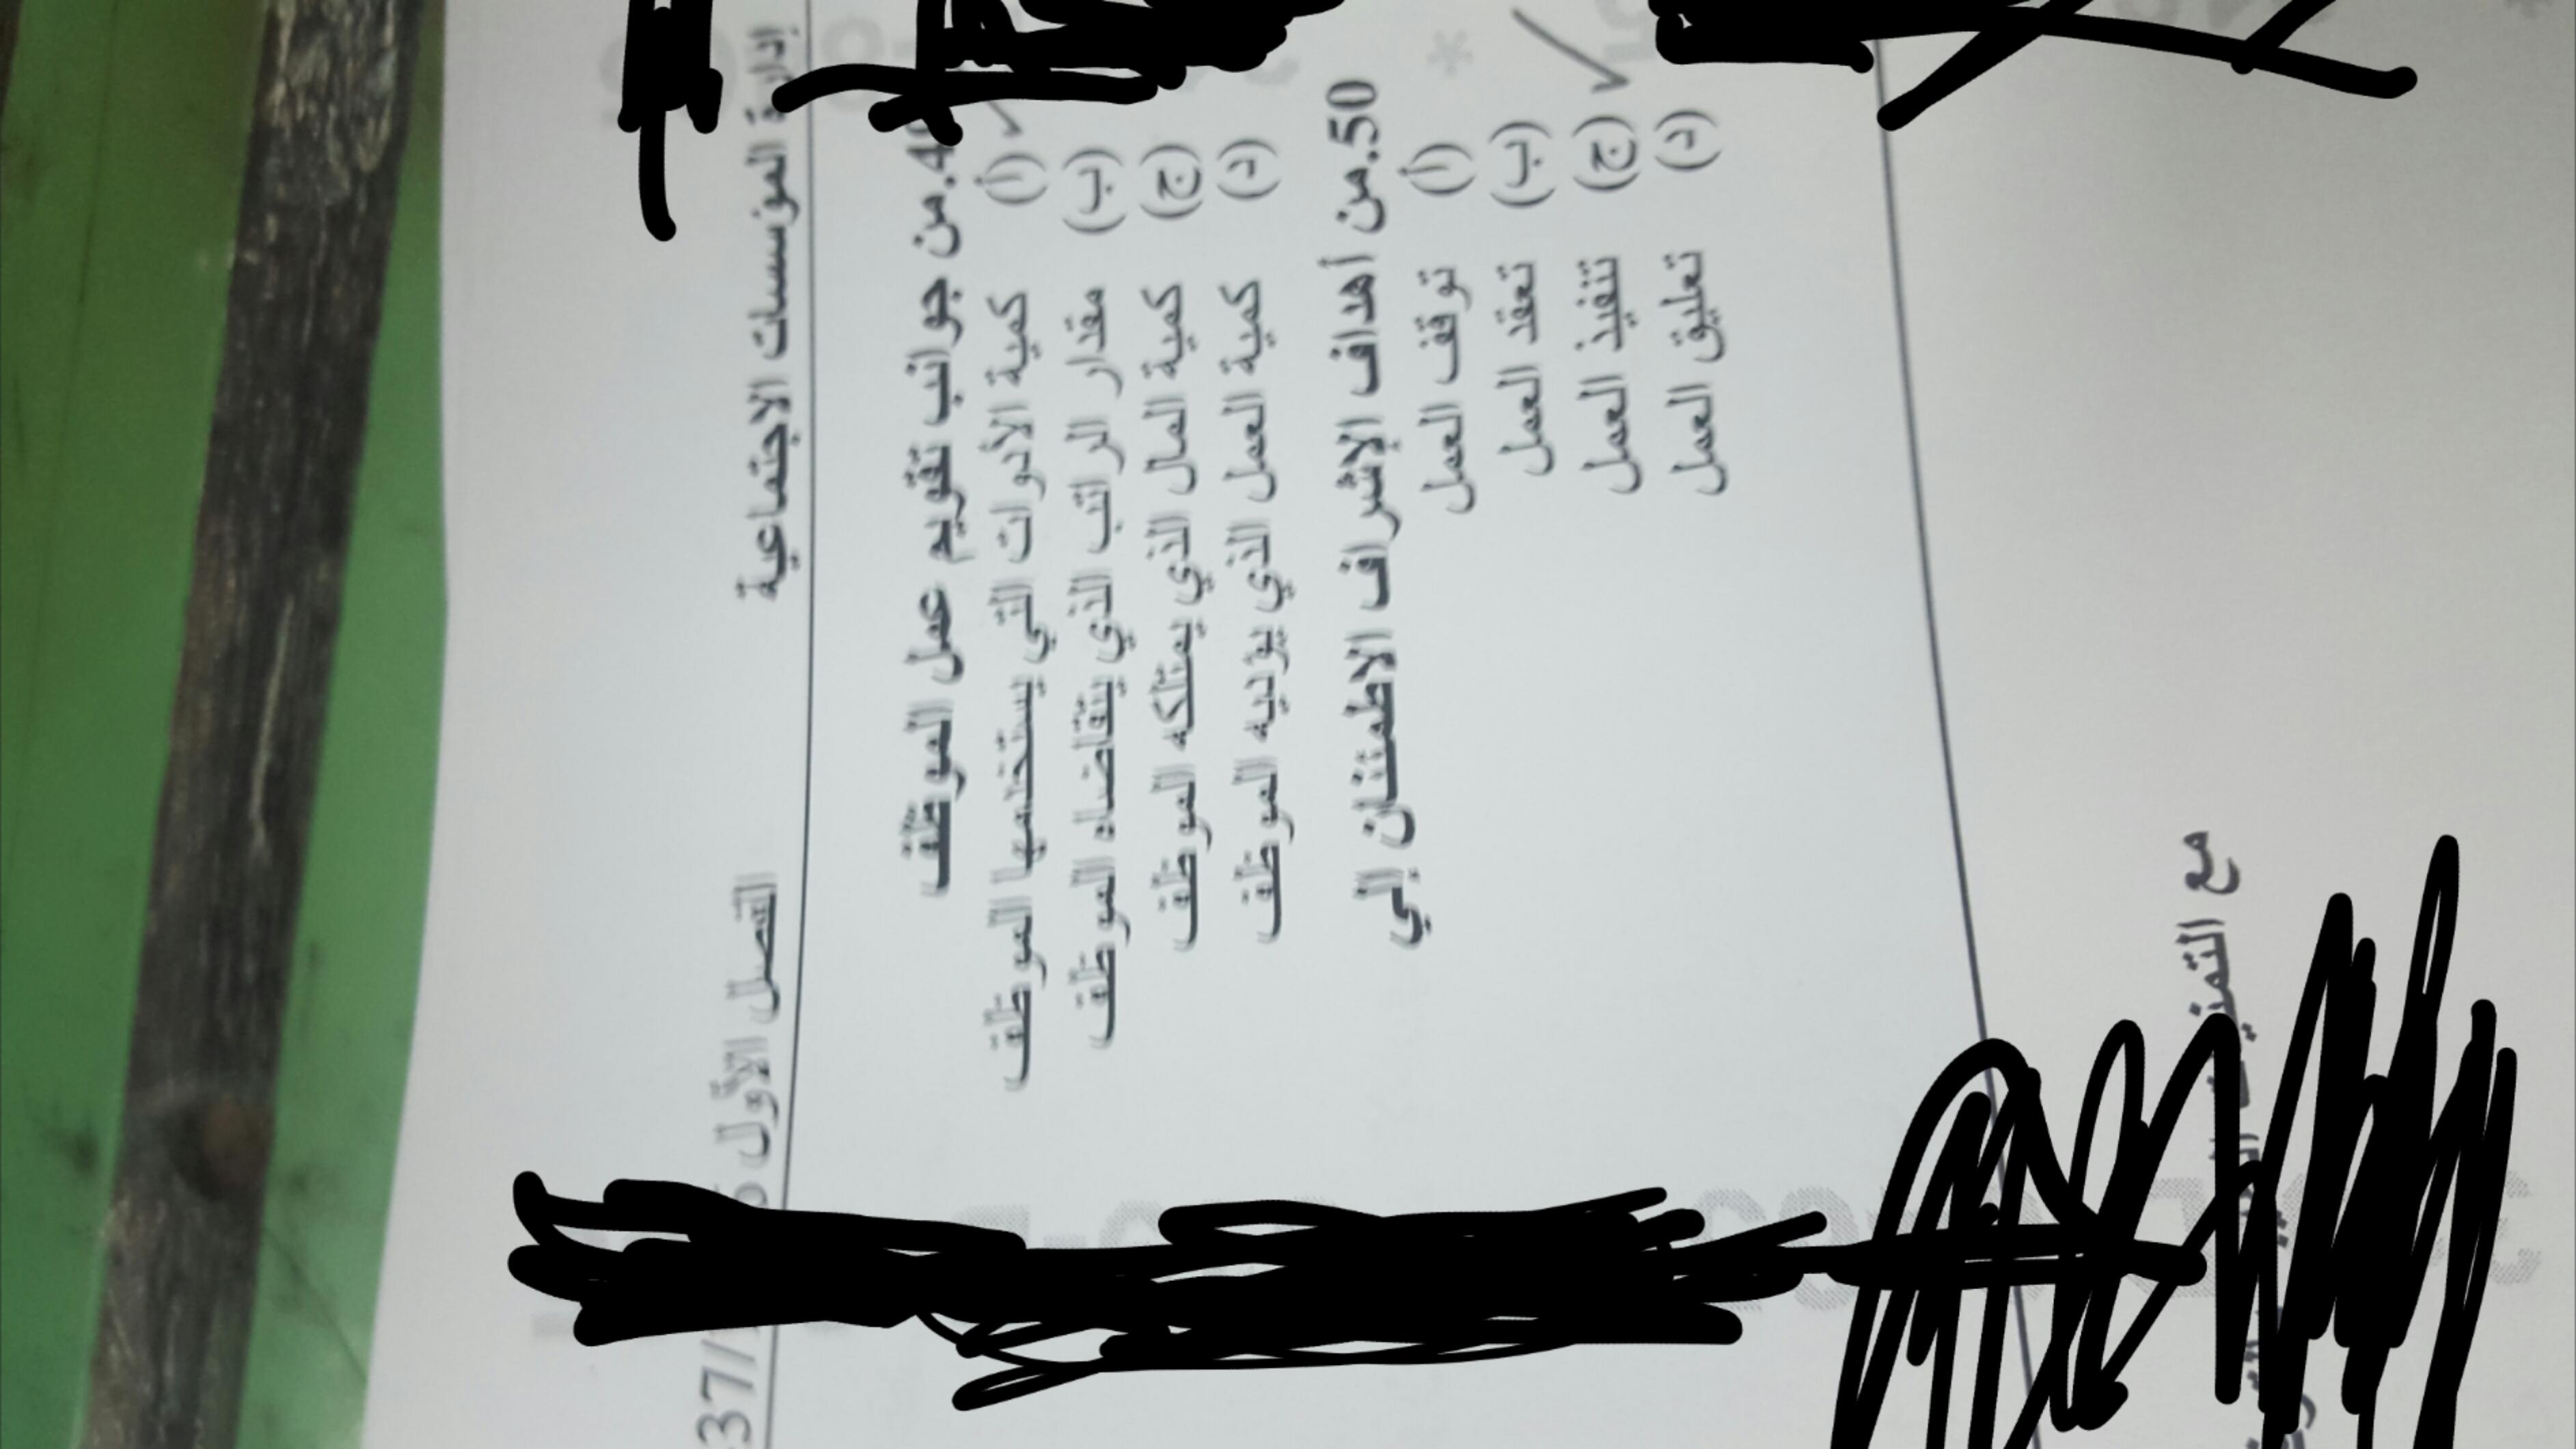 إدارة المؤسسات الاجتماعية الفصل الأول 37/
من جوانب تقويم عمل الموظف
(أ) كمية الأدوات التي يستخدمها الموظف
(ب) مقدار الراتب الذي يتقاضاه الموظف
(ج) كمية المال الذي يمتلكه الموظف
(د) كمية العمل الذي يؤديه الموظف
50.من أهداف الإشراف الاطمئنان إلي
(أ) توقف العمل
(ب) تعقد العمل
(ج) تنفيذ العمل
(د) تعليق العمل
مع